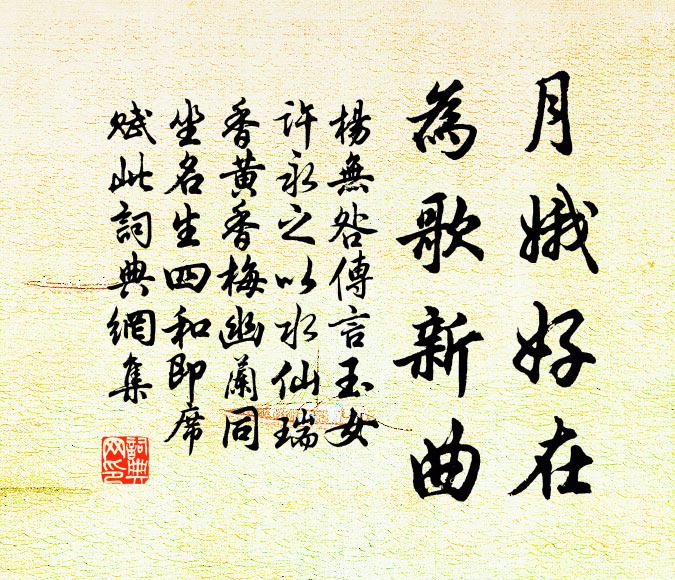 月娥好在
為歌新曲
楊無咎傳言玉女
許永之以水仙瑞
香黄香梅幽蘭同
坐名生四和即席
賦此詞典網集
詞典
网印